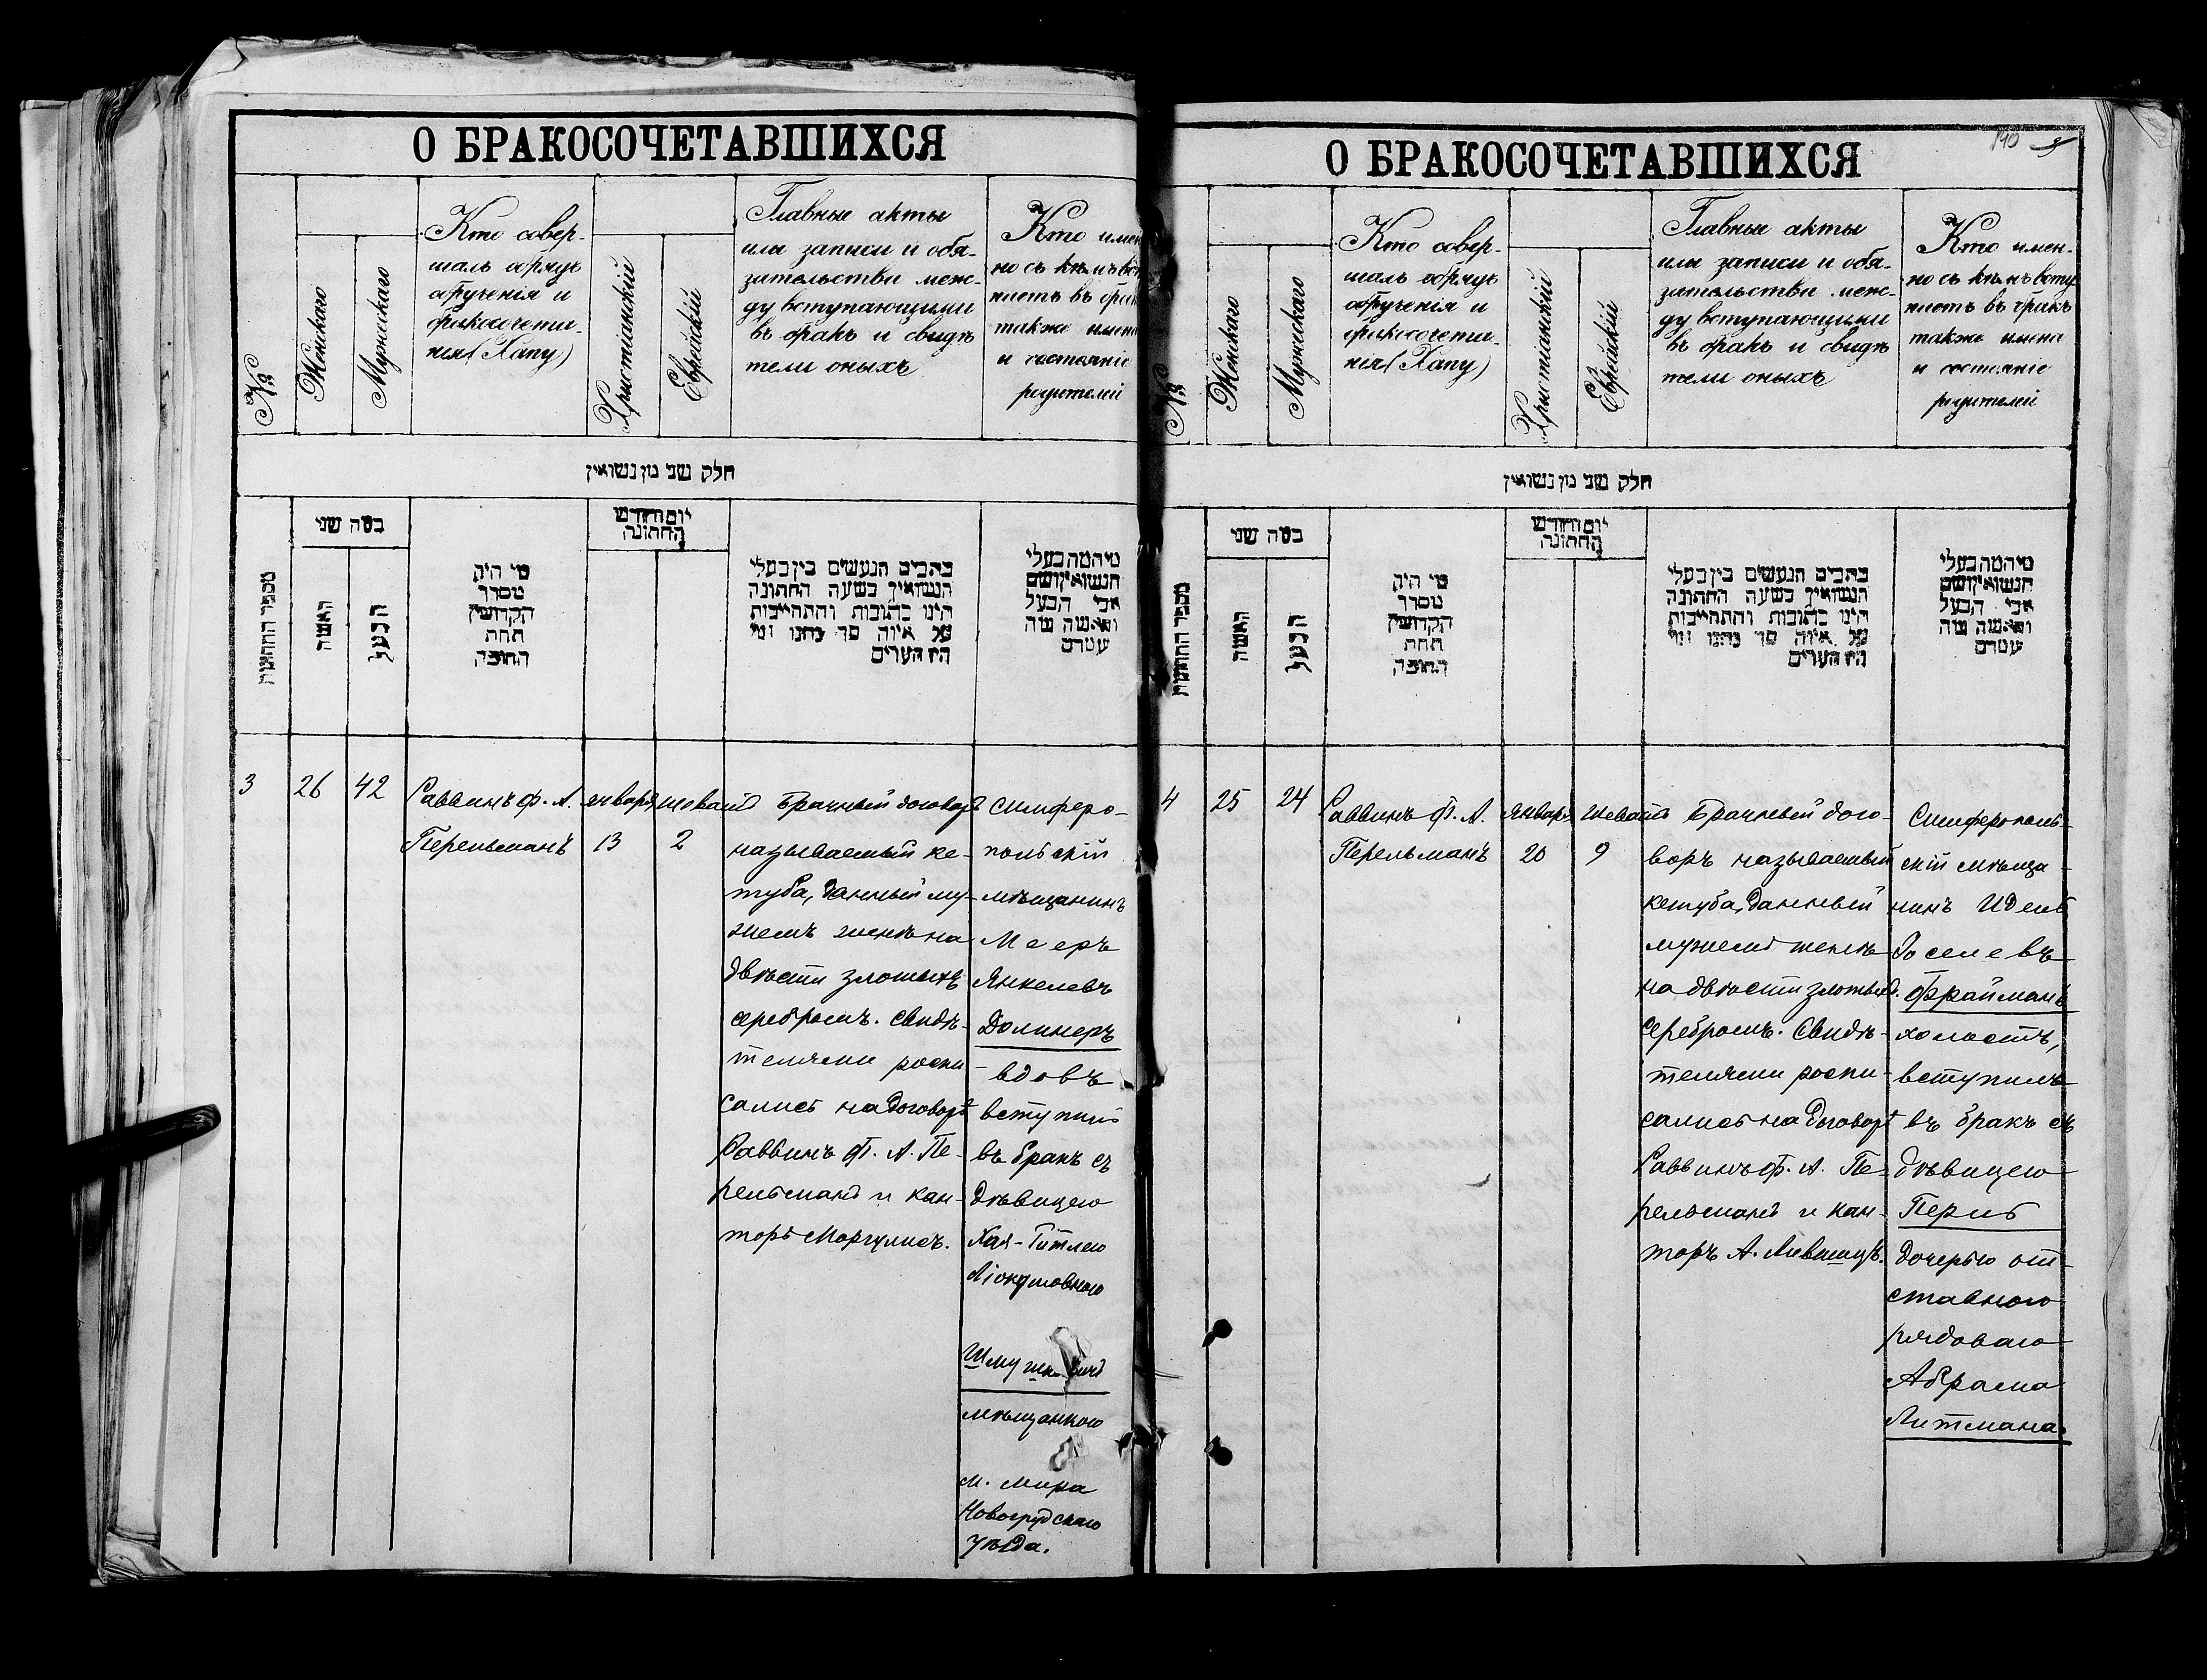 О БРАКОСОЧЕТАВШИХСЯ
№
Женскаго
Мужескаго
Кто совер-
шалъ обрядъ
обрученія и
бракосочета-
нія (Хапу)
Христіанскій
Еврейскій
Главные акты
или записи и обя-
зательства меж-
ду вступающими
въ бракъ и свидѣ
тели оныхъ
Кто имен
но съ кѣмъ вст
паетъ въ брак
также имена
и состояніе
родителей
חלק שני מן נשואין
מספר החתונות
כמה שני
האשה
הבעל
מי היה
מסדר
הקדושין
תחת
החופה
יום וחודש
החתונה
כתבים הנעשים בין בעלי
הנשואין בשעה החתונה
היינו כתובות והתחייבות
על איזה סך נתנו ומי
היו העדים
מי המה בעלי
הנשואין ושם
אבי הבעל
והאשה מה
עטרם
3
26
42
Раввинъ Ф. А.
Перельманъ
января
13
шеватъ
2
Брачный договоръ
называемый ке-
туба, данный му-
жемъ женѣ на
двѣсти злотыхъ
серебромъ. Свидѣ-
телями роспи
сались на договорѣ
Раввинъ Ф. А. Пе-
рельманъ и кан-
торъ Моргулисъ.
Симферо-
польскій
мѣщанинъ
Мееръ
Янкелевъ
Долинеръ
- вдовъ
вступилъ
въ бракъ съ
дѣвицею
Хая-Гитлею
мѣщанкою
м. Мира
Новогрудскаго
уѣзда.
О БРАКОСОЧЕТАВШИХСЯ
140
№
Женскаго
Мужескаго
Кто совер-
шалъ обрядъ
обрученія и
бракосочета-
нія (Хапу)
Христіанскій
Еврейскій
Главные акты
или записи и обя-
зательства меж-
ду вступающими
въ бракъ и свидѣ
тели оныхъ
Кто имен-
но съ кѣмъ всту
паетъ въ бракъ
также имена
и состояніе
родителей
חלק שני מן נשואין
מספר החתונות
כמה שני
האשה
הבעל
מי היה
מסדר
הקדושין
תחת
החופה
יום וחודש
החתונה
כתבים הנעשים בין בעלי
הנשואין בשעה החתונה
היינו כתובות והתחייבות
על איזה סך נתנו ומי
היו העדים
מי המה בעלי
הנשואין ושם
אבי הבעל
והאשה מה
עטרם
4
25
24
Раввинъ Ф. А.
Перельманъ
Января
20
Шеватъ
9
Брачный дого-
воръ называемый
кетуба, данный
мужемъ женѣ
на двѣсти злотыхъ
серебромъ. Свидѣ-
телями роспи-
сались на договорѣ
Раввинъ Ф. А. Пе-
рельманъ и кан-
торъ А. Лившицъ.
Симферополь-
скій мѣща-
нинъ Идель
Іоселевъ
Фрайманъ
холостъ,
вступилъ
въ бракъ съ
дѣвицею
Перль
дочерью от-
ставного
рядоваго
Абрама
Литмана.